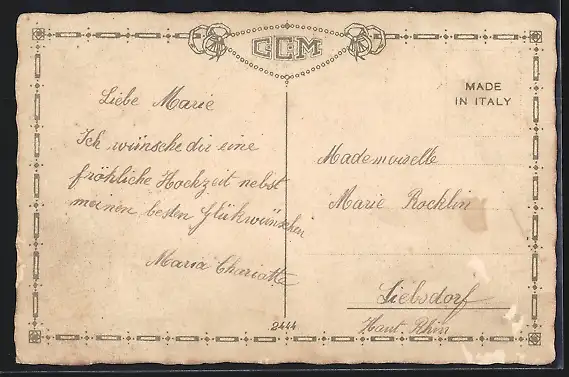 CCM
MADE
IN ITALY
Liebe Marie
Ich wünsche dir eine
fröhliche Hochzeit nebst
meinen besten Glükwünschen
Maria Chariatte
Mademoiselle
Marie Rocklin
Liebsdorf
Haut Rhin
2444